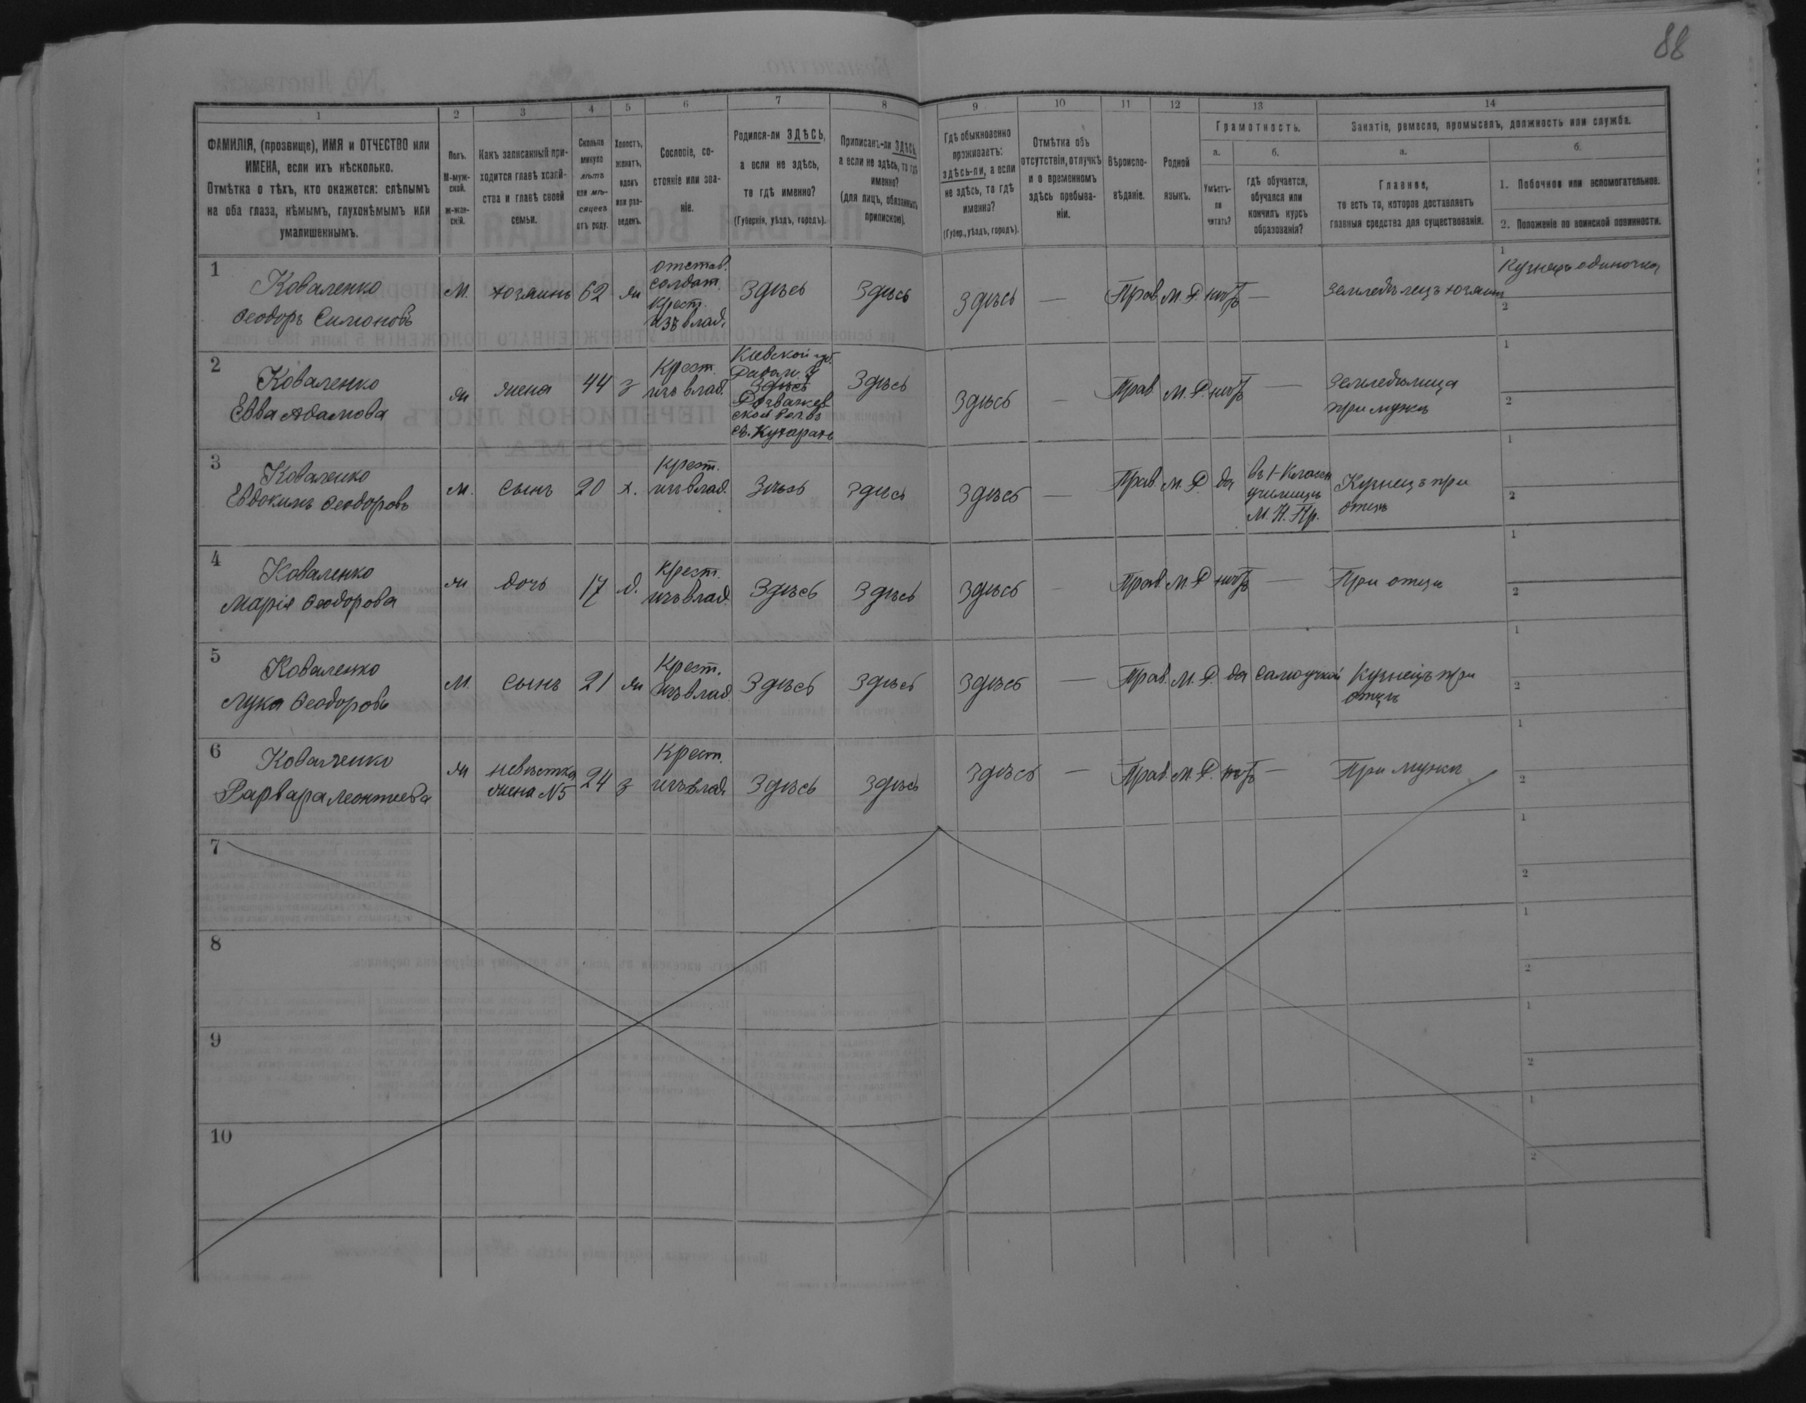 88
1 2 3 4 5 6 7 8 9 10 11 12 13 14
ФАМИЛІЯ, (прозвище), ИМЯ и ОТЧЕСТВО или
ИМЕНА, если ихъ нѣсколько.
Отмѣтка о тѣхъ, кто окажется: слѣпымъ
на оба глаза, нѣмымъ, глухонѣмымъ или
умалишеннымъ.
Полъ.
М-муж-
ской.
Ж-жен-
скій.
Какъ записанный при-
ходится главѣ хозяй-
ства и главѣ своей
семьи.
Сколько
минуло
лѣтъ
или мѣ-
сяцевъ
отъ роду.
Холостъ,
женатъ,
вдовъ
или раз-
веденъ.
Сословіе, со-
стояніе или зва-
ніе.
Родился-ли ЗДѢСЬ,
а если не здѣсь,
то гдѣ именно?
(Губернія, уѣздъ, городъ).
Приписанъ-ли ЗДѢСЬ,
а если не здѣсь, то гдѣ
именно?
(для лицъ, обязанныхъ
припиской).
Гдѣ обыкновенно
проживаетъ:
здѣсь-ли, а если
не здѣсь, то гдѣ
именно?
(Губер., уѣздъ, городъ).
Отмѣтка объ
отсутствіи, отлучкѣ
и о временномъ
здѣсь пребыва-
ніи.
Вѣроиспо-
вѣданіе.
Родной
языкъ.
Грамотность.
а.
Умѣетъ-
ли
читать?
б.
гдѣ обучается,
обучался или
кончилъ курсъ
образованія?
Занятіе, ремесло, промыселъ, должность или служба.
а.
Главное,
то есть то, которое доставляетъ
главныя средства для существованія.
б.
1. Побочное или вспомогательное.
2. Положеніе по воинской повинности.
1
Коваленко
Ѳеодоръ Симоновъ
М. хозяинъ 62 ж
отстав.
солдат.
Крест.
изъ влад.
Здѣсь Здѣсь Здѣсь — Прав. М. Р. нѣтъ —
Земледѣлецъ хозяинъ
1
Кузнецъ одиночка
2
2
Коваленко
Евва Адамова
ж жена 44 з
Крест.
изъ влад.
Кіевской губ.
Здѣсь
Здѣсь Здѣсь — Прав. М. Р. нѣтъ —
Земледѣлица
при мужѣ
1
2
3
Коваленко
Евдокимъ Ѳеодоровъ
М. сынъ 20 х.
Крест.
изъ влад.
Здѣсь Здѣсь Здѣсь — Прав. М. Р. да
въ 1-Классн.
училищѣ
М. Н. Пр.
Кузнецъ при
отцѣ
1
2
4
Коваленко
Марія Ѳеодорова
ж дочь 17 д.
Крест.
изъ влад.
Здѣсь Здѣсь Здѣсь — Прав. М. Р. нѣтъ —
При отцѣ
1
2
5
Коваленко
Лука Ѳеодоровъ
М. сынъ 21 ж
Крест.
изъ влад.
Здѣсь Здѣсь Здѣсь — Прав. М. Р. да самоучкой
Кузнецъ при
отцѣ
1
2
6
Коваленко
Варвара Леонтиева
ж
невѣстка
жена №5
24 з
Крест.
изъ влад.
Здѣсь Здѣсь Здѣсь — Прав. М. Р. нѣтъ —
При мужѣ
1
2
7
1
2
8
1
2
9
1
2
10
1
2